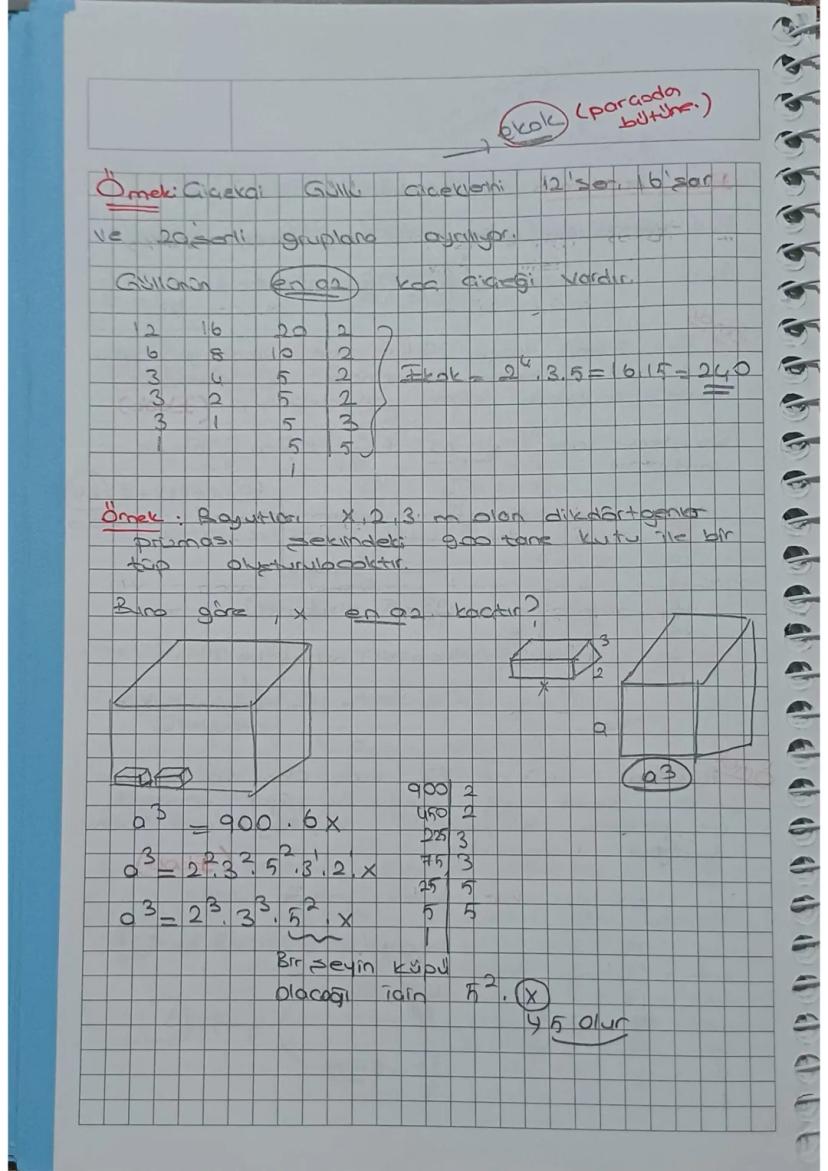 ekok (parçada
bütüne.)
Örnek: Çiçekçi Güllü çiçeklerini 12'şer, 16'şar
ve 20'şerli gruplara ayrılıyor.
Güllünün en az kaç çiçeği vardır.
12 16 20 2
6 8 10 2
3 4 5 2
3 2 5 2
3 1 5 3
1 5 5
1
Ekok = 2⁴.3.5=16.15=240
Örnek: Boyutları x,2,3 m olan dikdörtgenler
prizması şeklindeki 900 tane kutu ile bir
küp oluşturulacaktır.
Buna göre, x en az kaçtır?
3
2
x
a
a3
900 2
450 2
225 3
75 3
25 5
5 5
1
a³ = 900 . 6x
a³ = 2².3².5².3¹.2¹.x
a³ = 2³.3³.5².x
Bir şeyin küpü
olacağı için 5².x
5 olur